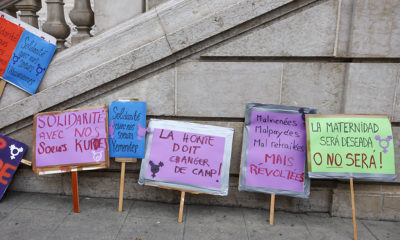 Solidarité
avec nos
soeurs
Yéménites
SOLIDARITÉ
AVEC NOS
Soeurs KURDES
Solidarité
avec nos
soeurs
Yéménites
LA HONTE
DOIT
CHANGER
DE CAMP!
Malmenées
Malpayées
Mal retraitées
MAIS
RÉVOLTÉES
LA MATERNIDAD
SERÁ DESEADA
O NO SERÁ!